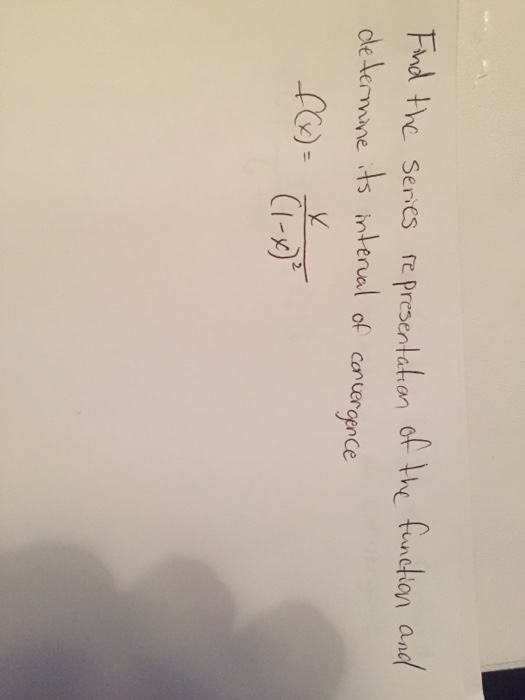 Find the series representation of the function and
determine its interval of convergence
f(x) = x/(1-x)²